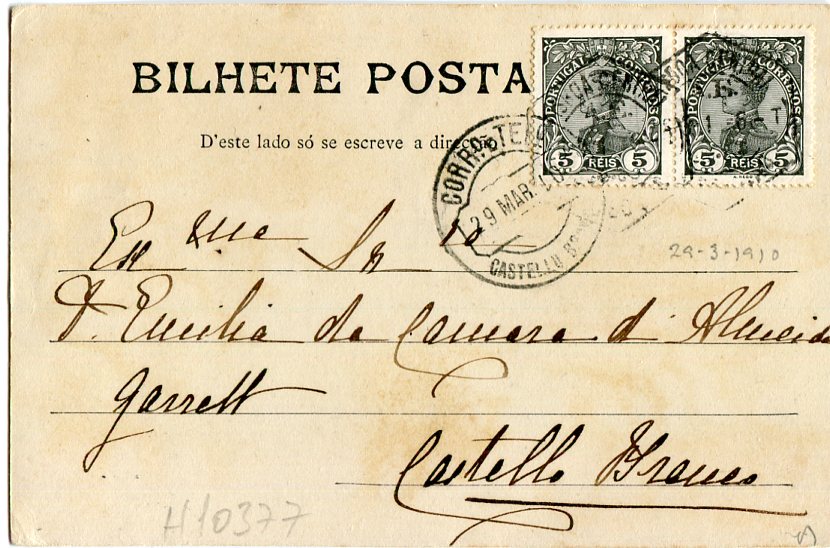 BILHETE POSTA
D'este lado só se escreve a direcção
PORTUGAL CORREIOS
5 REIS 5
PORTUGAL CORREIOS
5 REIS 5
CORRO. E TELEG
29 MAR. 10
CASTELLO BRANCO
LISBOA CENTRAL
29-3-1910
Exma Sra
D. Emilia da Camara d'Almeida
Garrett
Castello Branco
H10377